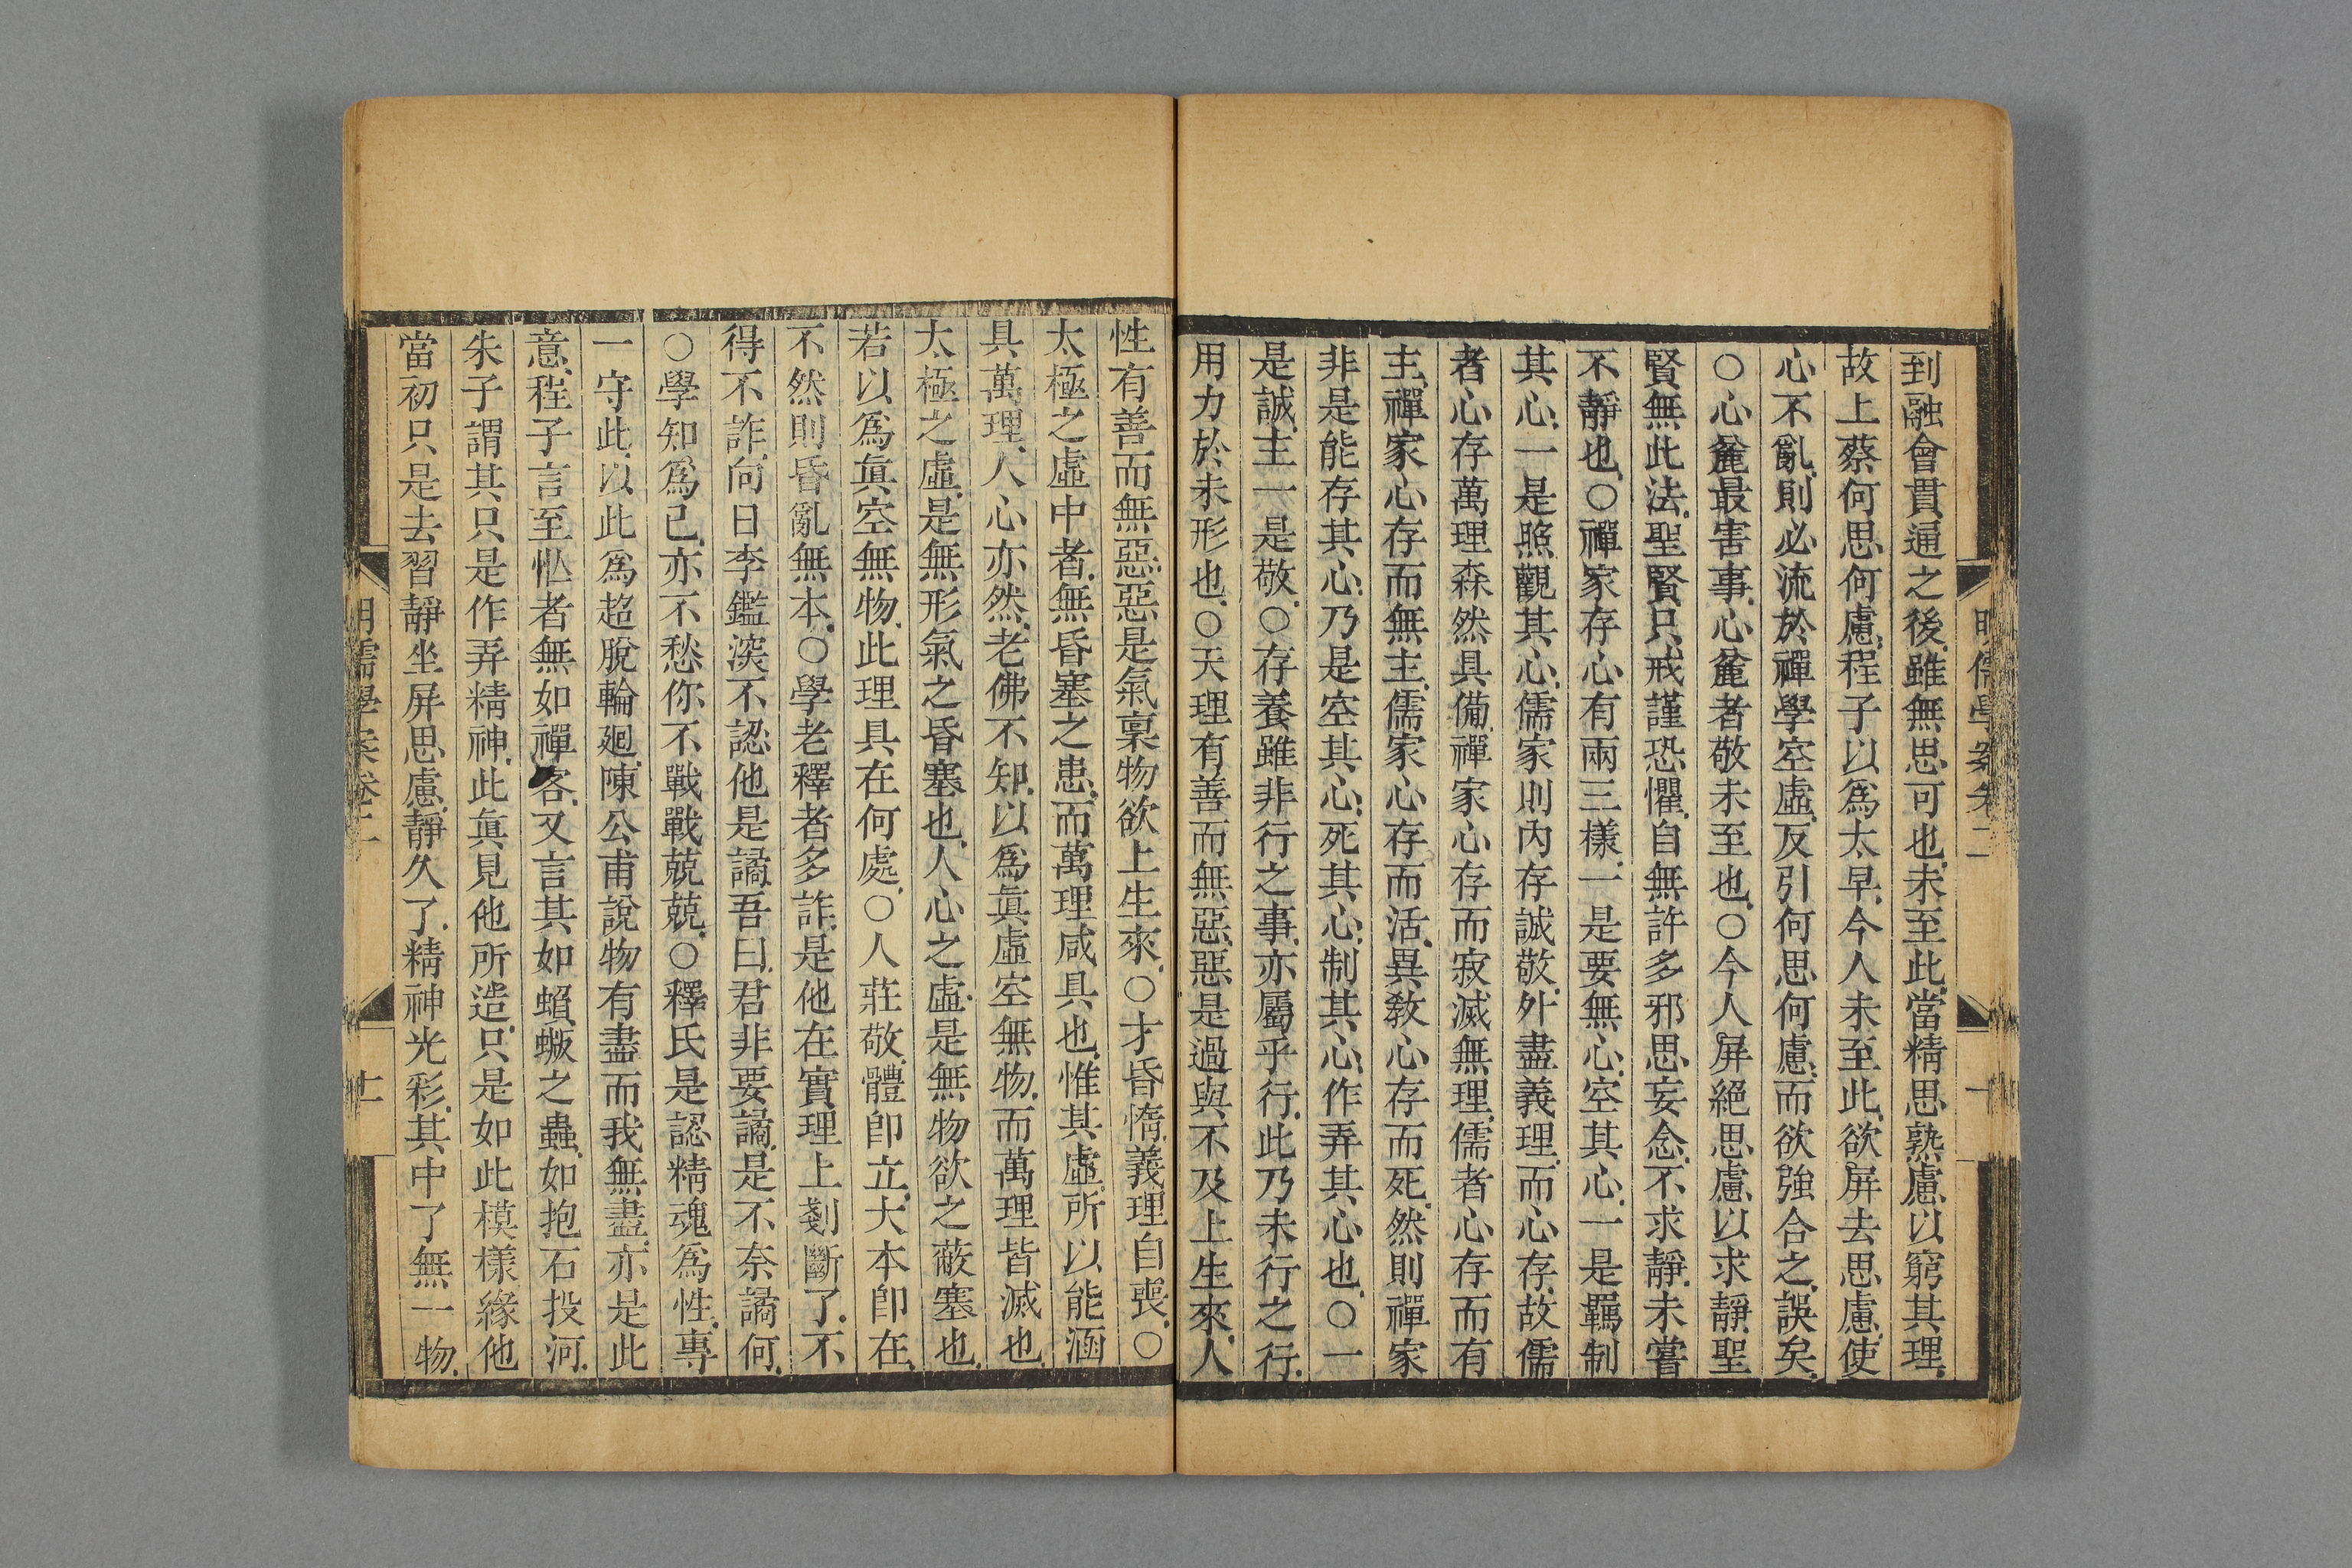 到融會貫通之後雖無思可也未至此當精思熟慮以窮其理
故上蔡何思何慮程子以爲太早今人未至此欲屏去思慮使
心不亂則必流於禪學空虛反引何思何慮而欲強合之誤矣
○心麄最害事心麄者敬未至也○今人屏絕思慮以求靜聖
賢無此法聖賢只戒謹恐懼自無許多邪思妄念不求靜未嘗
不靜也○禪家存心有兩三樣一是要無心空其心一是羈制
其心一是照觀其心儒家則內存誠敬外盡義理而心存故儒
者心存萬理森然具備禪家心存而寂滅無理儒者心存而有
主禪家心存而無主儒家心存而活異教心存而死然則禪家
非是能存其心乃是空其心死其心制其心作弄其心也○一
是誠主一是敬○存養雖非行之事亦屬乎行此乃未行之行
用力於未形也○天理有善而無惡惡是過與不及上生來人
性有善而無惡惡是氣稟物欲上生來○才昏惰義理自喪○
太極之虛中者無昏塞之患而萬理咸具也惟其虛所以能涵
具萬理人心亦然老佛不知以爲眞虛空無物而萬理皆滅也
太極之虛是無形氣之昏塞也人心之虛是無物欲之蔽塞也
若以爲眞空無物此理具在何處○人莊敬體卽立大本卽在
不然則昏亂無本○學老釋者多詐是他在實理上剗斷了不
得不詐向日李鑑深不認他是譎吾曰君非要譎是不奈譎何
○學知爲己亦不愁你不戰戰兢兢○釋氏是認精魂爲性專
一守此以此爲超脫輪廻陳公甫說物有盡而我無盡亦是此
意程子言至怪者無如禪客又言其如蝜蝂之蟲如抱石投河
朱子謂其只是作弄精神此眞見他所造只是如此模樣緣他
當初只是去習靜坐屏思慮靜久了精神光彩其中了無一物
明儒學案卷二
十
明儒學案卷二
十一